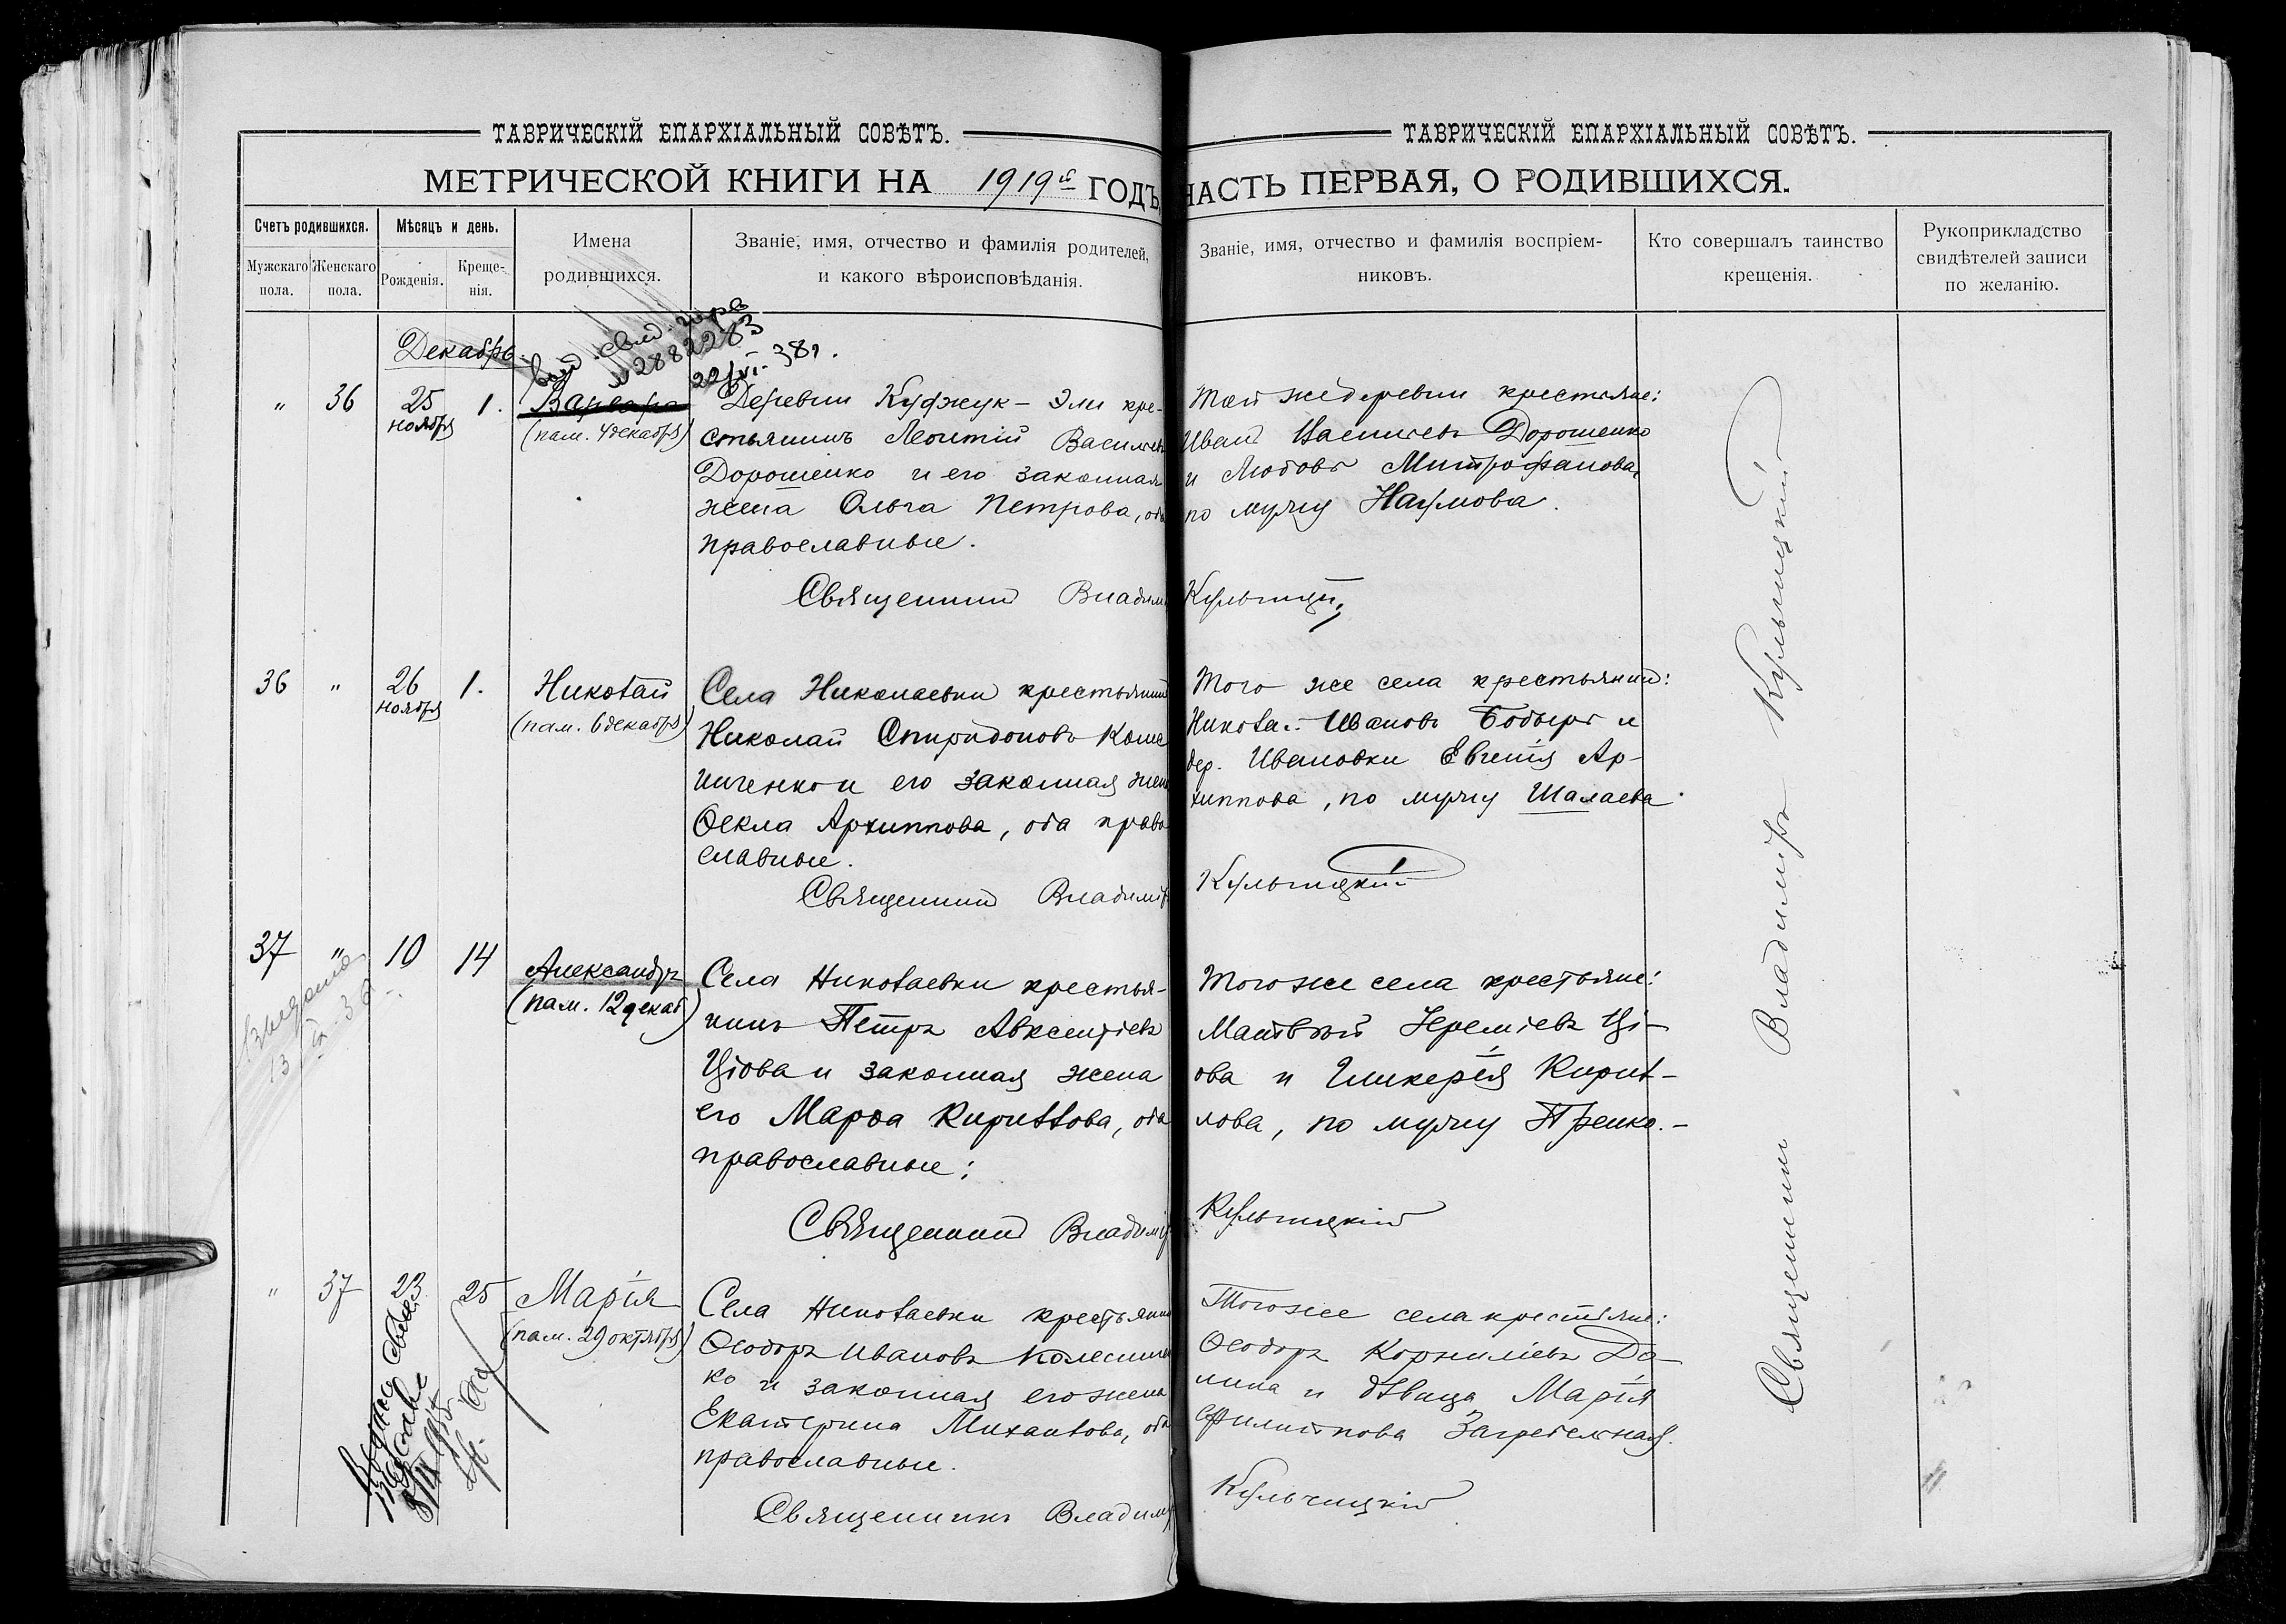 ТАВРИЧЕСКІЙ ЕПАРХІАЛЬНЫЙ СОВѢТЪ.
МЕТРИЧЕСКОЙ КНИГИ НА 1919й ГОДЪ,
Счетъ родившихся.
Мужскаго пола.
Женскаго пола.
Мѣсяцъ и день.
Рожденія.
Крещенія.
Имена
родившихся.
Званіе, имя, отчество и фамилія родителей,
и какого вѣроисповѣданія.
Декабрь.
22/VI-38г.
" 36 25 ноября 1. Варвара
(пам. 4 декабря)
Деревни Куджук-Эли кре-
стьянинъ Леонтій Васильевъ
Дорошенко и его законная
жена Ольга Петрова, оба
православные.
Священникъ Владиміръ
36 " 26 ноября 1. Николай
(пам. 6 декабря)
Села Николаевки крестьянинъ
Николай Спиридоновъ
и его законная жена
Ѳекла Архиппова, оба право
славные.
Священникъ Владиміръ
37 " 10 14 Александръ
(пам. 12 декаб)
Села Николаевки крестья-
нинъ Петръ Авксентіевъ
Цюва и законная жена
его Марѳа Кириллова, оба
православные;
Священникъ Владиміръ
" 37 23 25 Марія
(пам. 29 октября)
Села Николаевки крестьянинъ
Ѳеодоръ Ивановъ Колесничен
ко и законная его жена
Екатерина Михайлова, оба
православные.
Священникъ Владиміръ
ТАВРИЧЕСКІЙ ЕПАРХІАЛЬНЫЙ СОВѢТЪ.
ЧАСТЬ ПЕРВАЯ, О РОДИВШИХСЯ.
Званіе, имя, отчество и фамилія воспріем-
никовъ.
Кто совершалъ таинство
крещенія.
Рукоприкладство
свидѣтелей записи
по желанію.
Той же деревни крестьяне:
Иванъ Васильевъ Дорошенко
и Любовь Митрофанова,
по мужу Наумова.
Кульчицкій
Того же села крестьянинъ:
Николай Ивановъ Бодыръ и
дер. Ивановки Евгенія Ар-
хиппова, по мужу Шалаева.
Кульчицкій
Того же села крестьяне:
Матвѣй Іереміевъ Ці-
ова и Гликерія Кирил-
лова, по мужу
Кульчицкій
Того же села крестьяне:
Ѳеодоръ Корниліевъ До-
лина и дѣвица Марія
Филиппова Загребельная.
Кульчицкій
Священникъ Владиміръ Кульчицкій